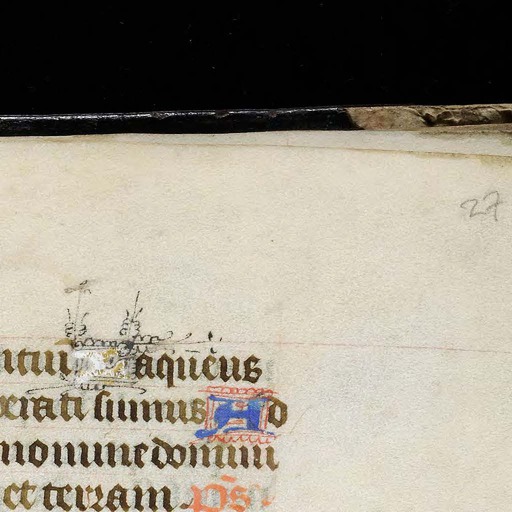 27
ntur Laqueus
erati sumus Ad
nomine domini
et terram. Ps.